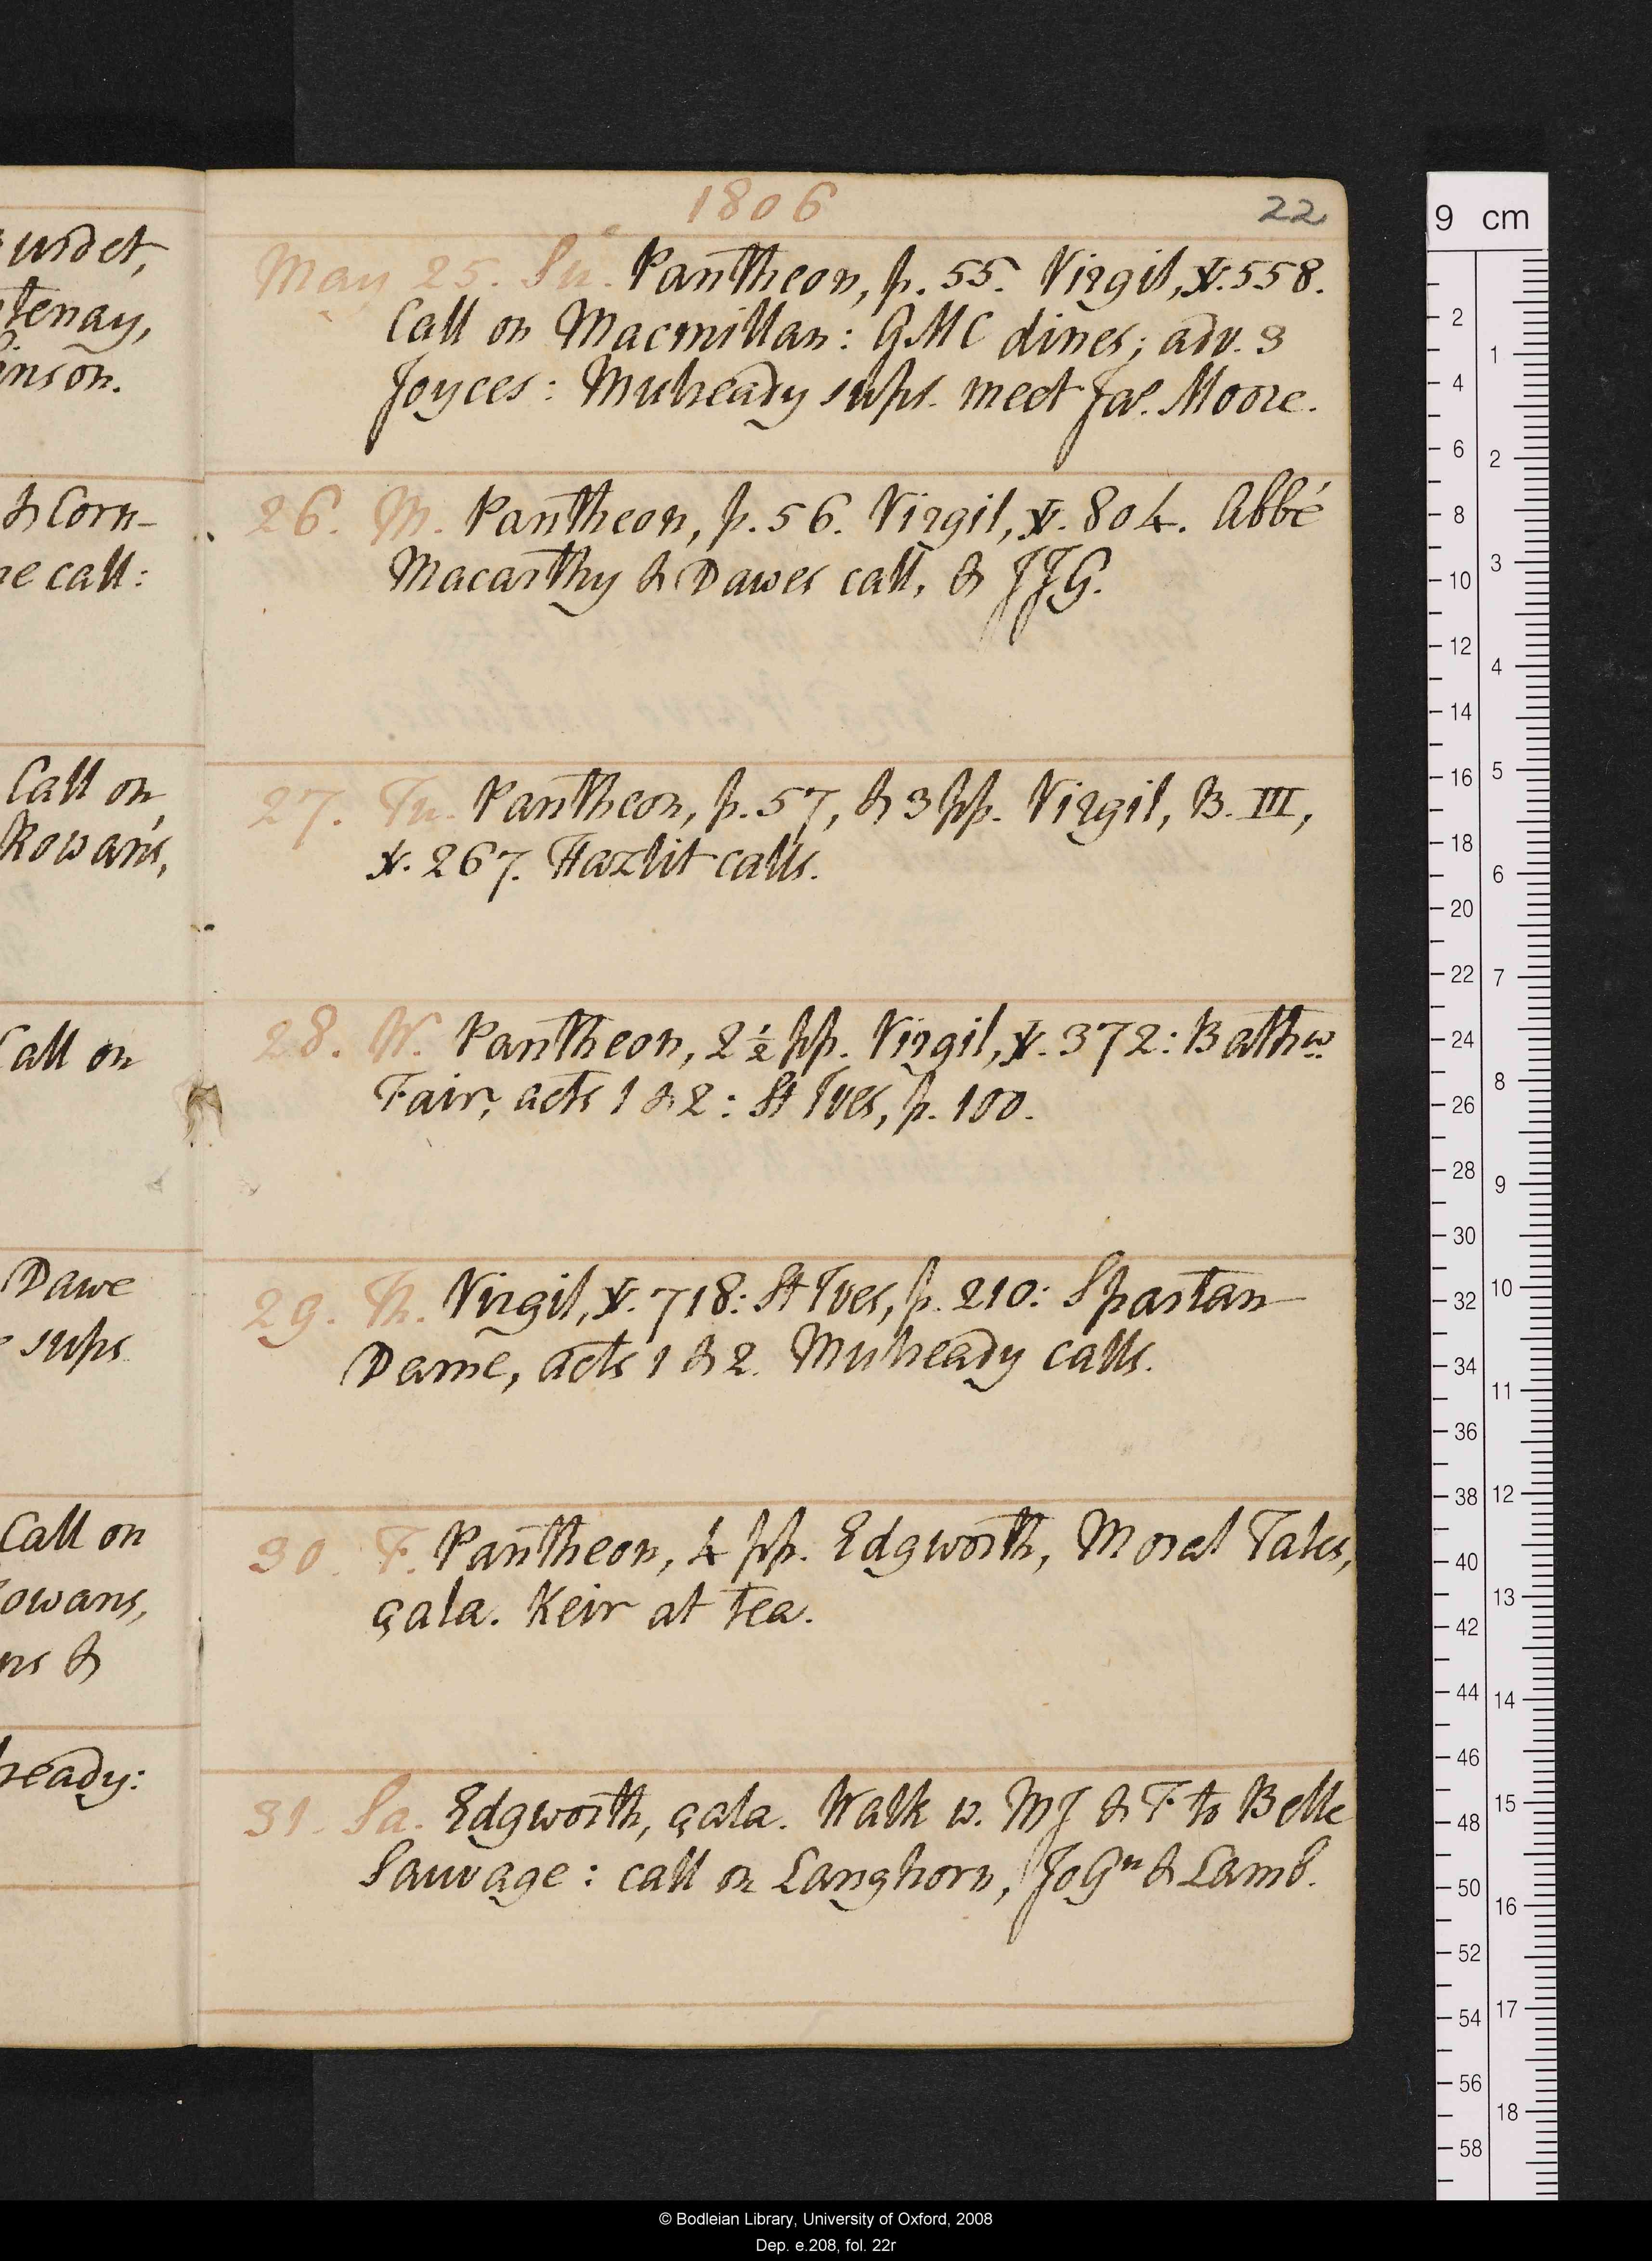 urdet,
tenay,
inson.
& Corn-
ne call:
Call on
Rowan's,
Call on
Dawe
e sups
Call on
owans,
ns &
ready:
1806
22
May 25. Su. Pantheon, p. 55. Virgil, ℣. 558.
Call on Macmillan: GMC dines; adv. 3
Joyces: Mulready sups. meet Jas. Moore.
26. M. Pantheon, p. 56. Virgil, ℣. 804. Abbé
Macarthy & Dawes call, & JJG.
27. Tu. Pantheon, p. 57, & 3 pp. Virgil, B. III,
℣. 267. Hazlit calls.
28. W. Pantheon, 2 ½ pp. Virgil, ℣. 372: Bathw.
Fair, acts 1 & 2: St Ives, p. 100.
29. Th. Virgil, ℣. 718: St Ives, p. 210: Spartan
Dame, acts 1 & 2. Mulready calls.
30. F. Pantheon, 4 pp. Edgworth, Moral Tales,
çala. Keir at tea.
31. Sa. Edgworth, çala. Walk w. MJ & F to Belle
Sauvage: call on Langhorn, JoGn & Lamb.
9 cm
2
4
6
8
10
12
14
16
18
20
22
24
26
28
30
32
34
36
38
40
42
44
46
48
50
52
54
56
58
1
2
3
4
5
6
7
8
9
10
11
12
13
14
15
16
17
18
© Bodleian Library, University of Oxford, 2008
Dep. e.208, fol. 22r